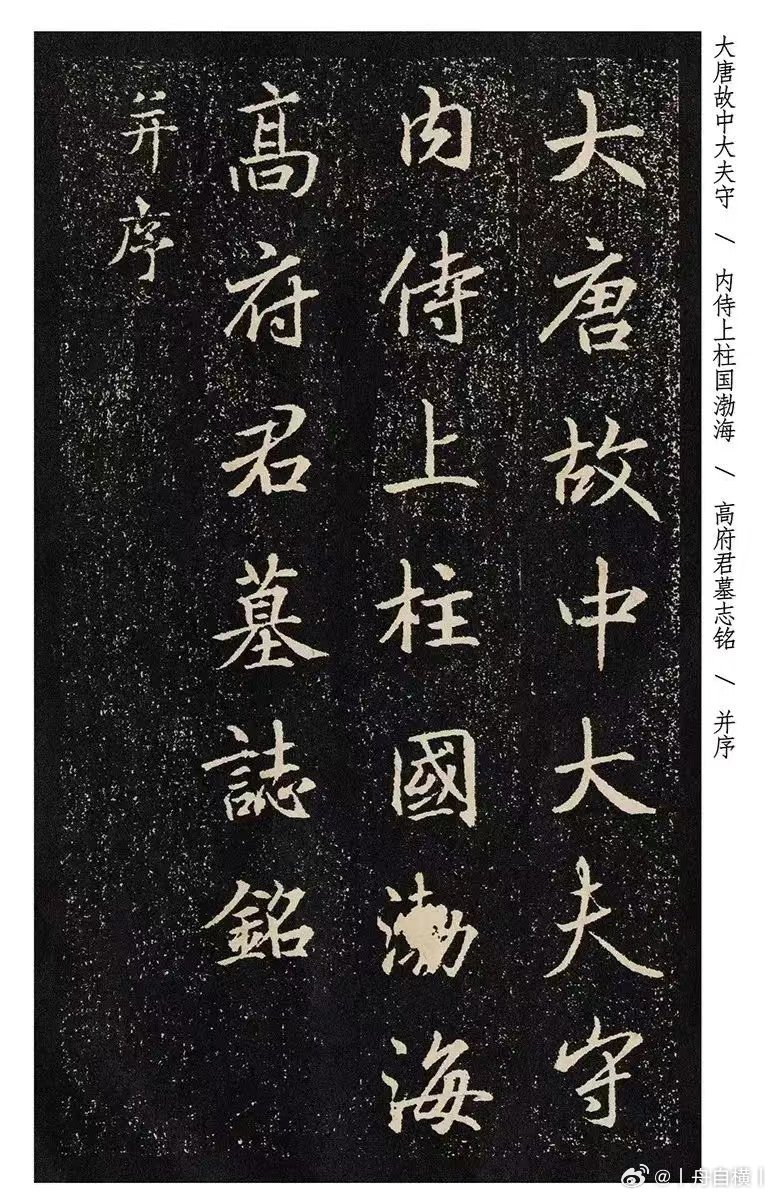 大唐故中大夫守 / 内侍上柱国渤海 / 高府君墓志铭 / 并序
大唐故中大夫守
内侍上柱國渤海
高府君墓誌銘
并序
@丨舟自横丨